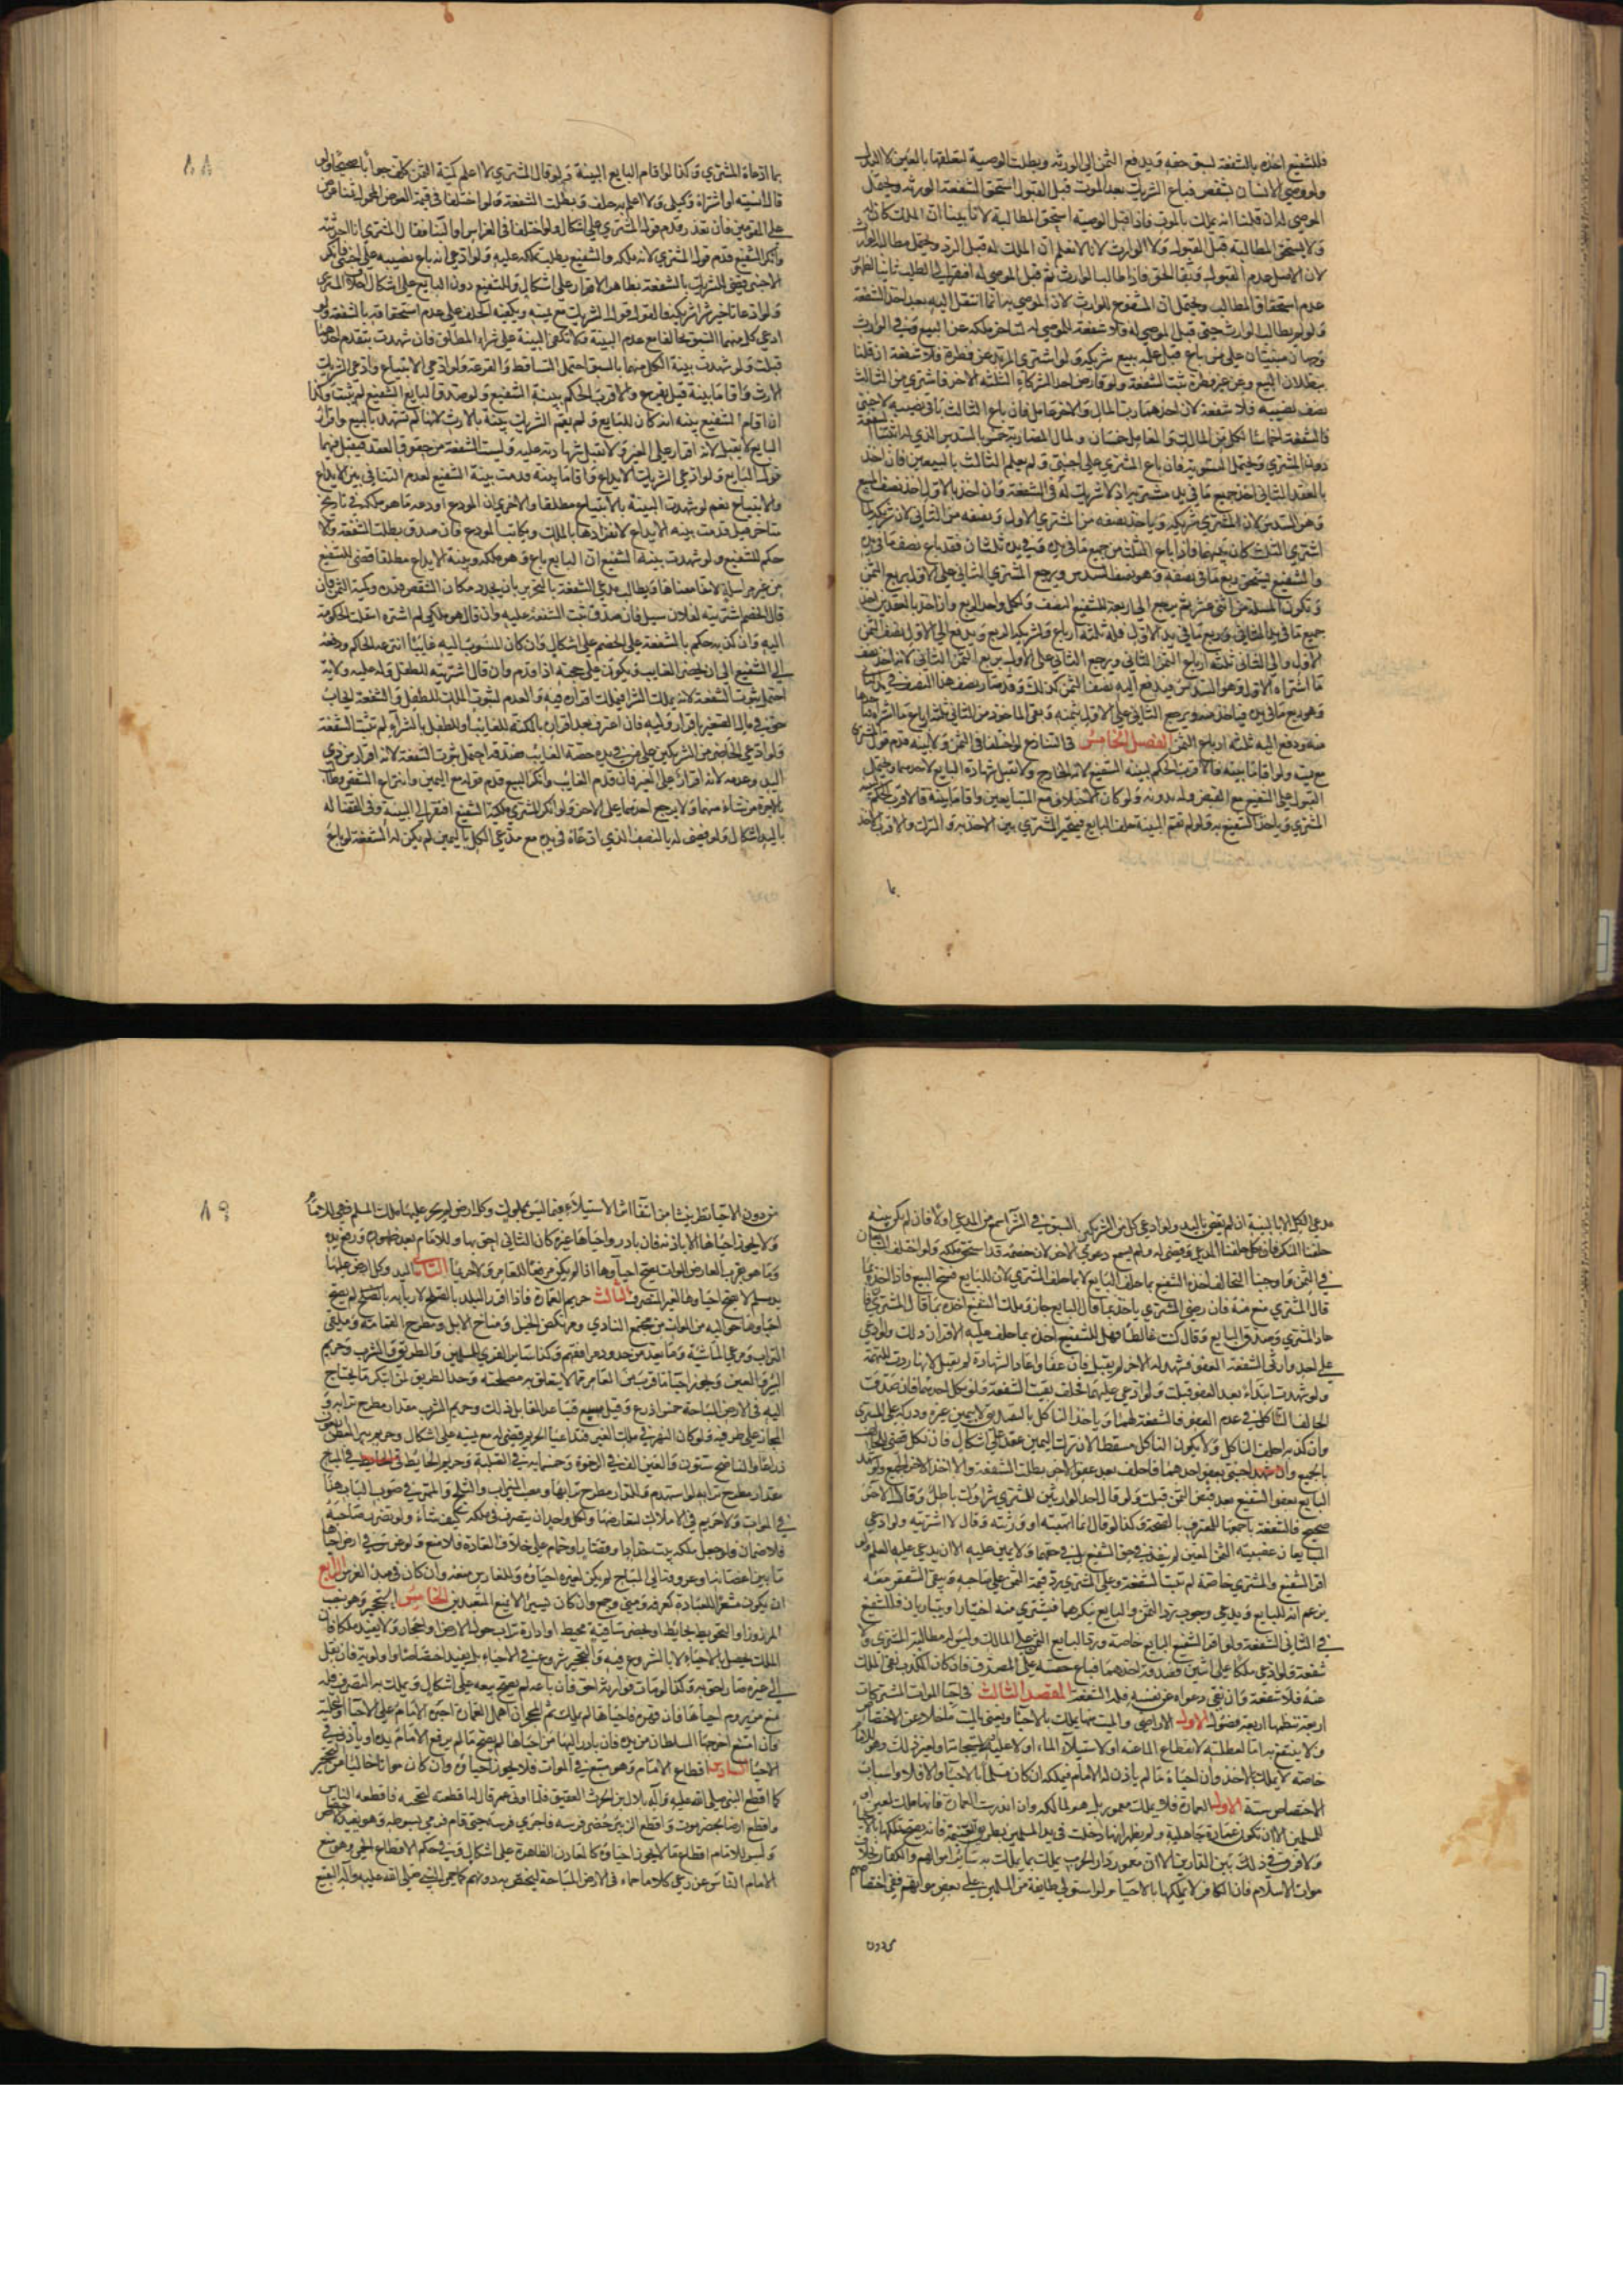 فللشفيع اخذه بالشفعة لسبق حقه ويدفع الثمن الى الورثة وبطلت الوصية لتعلقها بالعين لا البدل
ولو وصى لانسان بشقص فباع الشريك بعد الموت قبل القبول استحق الشفعة الورثة ويحتمل
الموصى له ان قلنا انه يملك بالموت فاذا قبل الوصية استحق المطالبة لانا تبينا ان الملك كان له
ولا يستحق المطالبة قبل القبول ولا الوارث لانا لا نعلم ان الملك له قبل الرد ويحتمل مطالبة الوارث
لان الاصل عدم القبول وبقاء الحق فاذا طالب الوارث ثم قبل الموصى له افتقر الى الطلب ثانيا لظهور
عدم استحقاق المطالب ويحتمل ان المشفوع للوارث لان الموصى به انما انتقل اليه بعد اخذ الشفعة
ولو لم يطالب الوارث حتى قبل الموصى له فلا شفعة للموصى له لتاخر ملكه عن البيع وفي الوارث
وجهان مبنيان على من باع قبل علمه ببيع شريكه ولو اشترى المرتد عن فطرة فلا شفعة ان قلنا
ببطلان البيع وعن غير فطرة تثبت الشفعة ولو قارض احد الشركاء الثلثة الاخر فاشترى من الثالث
نصف نصيبه فلا شفعة لان احدهما رب المال والاخر عامل فان باع الثالث باقي نصيبه لاجنبي
فالشفعة اخماسا لكل من المالك والعامل خمسان ولمال المضاربة خمس بالسدس الذي له
بالعقد الثاني اخذ جميع ما في يد مشتريه اذ لا شريك له في الشفعة وان اخذ بالاول اخذ نصف المبيع
وهو السدس لان المشتري شريكه وياخذ نصفه من المشتري الاول ونصفه من الثاني لان شريكه لما
اشترى الثلث كان بينهما فاذا باع الثلث من جميع ما في يده وفي يده ثلثان فقد باع نصف ما في يده
والشفيع يستحق ربع ما في يده وهو نصف السدس ويرجع المشتري الثاني على الاول بربع الثمن
وتكون المسئلة من اثنى عشر ثم يرجع الى اربعة للشفيع النصف ولكل واحد الربع وان اخذ بالعقدين اخذ
جميع ما في يد الثاني وربع ما في يد الاول فله ثلثة ارباع ولشريكه الربع ويدفع الى الاول نصف الثمن
الاول والى الثاني ثلثة ارباع الثمن الثاني ويرجع الثاني على الاول بربع الثمن الثاني لانه اخذ نصف
ما اشتراه الاول وهو السدس فيدفع اليه نصف الثمن كذلك وقد صار نصف هذا النصف في يد الثاني
وهو ربع ما في يده فياخذه منه ويرجع الثاني على الاول بثمنه وبقى الماخوذ من الثاني ثلثة ارباع ما اشتراه
منه ودفع اليه ثلثة ارباع الثمن الفصل الخامس في التنازع لو اختلفا في الثمن ولا بينة قدم قول المشتري
مع يمينه ولو اقاما بينة فالاقرب الحكم لبينة الشفيع لانه الخارج ولا تقبل شهادة البايع لاحدهما ويحتمل
القبول على الشفيع مع القبض وله بدونه ولو كان الاختلاف مع المتبايعين واقاما بينة فالاقرب الحكم لبينة
المشتري وياخذ الشفيع به ولو لم تقم البينة حلف البايع فيتخير المشتري بين الاخذ به والترك والاقرب الاخذ
بما
بما ادعاه المشتري وكذا لو اقام البايع البينة ولو قال المشتري لا اعلم كمية الثمن كلف جوابا صحيحا ولو
قال نسيته او اشتراه وكيلي ولا اعلم به حلف وبطلت الشفعة ولو اختلفا في قيمة العوض المجعول ثمنا عرض
على المقومين فان تعذر قدم قول المشتري على اشكال ولو اختلفا في الغراس او البناء فقال المشتري انا احدثته
وانكر الشفيع قدم قول المشتري لانه ملكه والشفيع يطلب تملكه عليه ولو ادعى انه باع نصيبه على اجنبي فانكر
الاجنبي قضي للشريك بالشفعة بظاهر الاقرار على اشكال وللشفيع دون البايع على اشكال احلاف المشتري
ولو ادعيا تاخير شراء شريكه فالقول قول الشريك مع يمينه ويكفيه الحلف على عدم استحقاقه بالشفعة ولو
ادعى كل منهما السبق تحالفا مع عدم البينة ولا تكفي البينة على شراء المطلق فان شهدت بتقدم احدهما
قبلت ولو شهدت بينة الكل منهما بالسبق احتمل التساقط والقرعة ولو ادعى الابتياع وادعى الشريك
الارث واقاما بينة قيل يقرع والاقرب الحكم ببينة الشفيع ولو صدق البايع الشفيع لم تثبت وكذا
ان اقام الشفيع بينة انه كان للبايع ولم يقم الشريك بينة بالارث لانها لم تشهد بالبيع واقرار
البايع لا يقبل لانه اقرار على الغير ولا تقبل شهادته عليه وليست الشفعة من حقوق العقد فيقبل فيها
قول البايع ولو ادعى الشريك الايداع واقاما بينة قدمت بينة الشفيع لعدم التنافي بين الايداع
والابتياع نعم لو شهدت البينة بالابتياع مطلقا والاخرى ان المودع اودعه ما هو ملكه في تاريخ
متاخر قيل قدمت بينة الايداع لانفرادها بالملك ويكاتب المودع فان صدق بطلت الشفعة والا
حكم للشفيع ولو شهدت بينة الشفيع ان البايع باع وهو ملكه وبينة الايداع مطلقا قضى للشفيع
من غير مراسلة لانتفاء معناها ويطالب مدعي الشفعة بالتحرير بان يحدد مكان الشقص وقدره وكمية الثمن فان
قال الخصم اشتريته لفلان سئل فان صدق ثبتت الشفعة عليه وان قال هو ملكي لم اشتره انتقلت الحكومة
اليه وان كذبه حكم بالشفعة على الخصم على اشكال وان كان المنسوب اليه غايبا انتزعه الحاكم ودفعه
الى الشفيع الى ان يحضر الغايب ويكون على حجته اذا قدم وان قال اشتريته للطفل وله عليه ولاية
احتمل ثبوت الشفعة لانه يملك الشراء فملك اقراره فيه والعدم لثبوت الملك للطفل والشفعة ايجاب
حق في مال الصغير باقرار وليه فان اعترف بعد اقراره بالملكية للغايب او للطفل بالشراء لم تثبت الشفعة
ولو ادعى الحاضر من الشريكين على من في يده حصة الغايب فصدقه احتمل ثبوت الشفعة لانه اقرار من ذي
اليد وعدمه لانه اقرار على الغير فان قدم الغايب وانكر البيع قدم قوله مع اليمين وانتزع الشقص وطالب
بالاجرة من شاء منهما ولا يرجع احدهما على الاخر ولو انكر المشتري ملكية الشفيع افتقر الى البينة وفي القضاء له
باليد اشكال ولو قضى له بالنصف الذي ادعاه في يده مع مدعي الكل باليمين لم يكن له الشفعة لو باع
مدعي الكل الا بالبينة ان لم نقض باليد ولو ادعى كل من الشريكين السبق في الشراء سمع من المدعي اولا فان لم يكن بينة
حلفنا المنكر فان نكل حلفنا المدعي وقضى له ولم تسمع دعوى الاخر لان خصمه قد استحق ملكه ولو اختلف المتبايعان
في الثمن واوجبنا التحالف اخذه الشفيع بما حلف البايع لا بما حلف المشتري لان للبايع فسخ البيع فاذا اخذه بما
قال المشتري منع منه فان رضي المشتري باخذه بما قال البايع جاز وملك الشفيع اخذه بما قال المشتري فان
عاد المشتري وصدق البايع وقال كنت غالطا فهل للشفيع اخذه بما حلف عليه الاقرب ذلك ولو ادعى
على احد وارثي الشفعة العفو فشهد له الاخر لم يقبل فان عفا واعاد الشهادة لم يقبل لانها ردت للتهمة
ولو شهد ابتداء بعد العفو قبلت ولو ادعى عليهما فحلفا ثبتت الشفعة ولو نكل احدهما فان صدق
الحالف الناكل في عدم العفو فالشفعة لهما وياخذ الناكل بالتصديق لا بيمين غيره ودركه على المشتري
وان كذبه احلف الناكل ولا يكون النكول مسقطا لان ترك اليمين عذر على اشكال فان نكل قضي للحالف
بالجميع وان شهد اجنبي بعفو احدهما فان حلف بعد عفو الاخر بطلت الشفعة والا اخذ الاخر الجميع ولو شهد
البايع بعفو الشفيع بعد قبض الثمن قبلت ولو قال احد الوارثين للمشتري شراؤك باطل وقال الاخر
صحيح فالشفعة باجمعها للمعترف بالصحة وكذا لو قال انما اتهبته او ورثته وقال الاخر اشتريته ولو ادعى
المتبايعان غصبية الثمن المعين لم ينفذ في حق الشفيع بل في حقهما ولا يمين عليه الا ان يدعي عليه العلم ولو
اقر الشفيع والمشتري خاصة لم تثبت الشفعة وعلى المشتري رد قيمة الثمن على صاحبه ويبقى الشقص معه
بزعم انه للبايع ويدعي وجوب رد الثمن والبايع ينكرهما فيشتري منه اختيارا ويتباريان فللشفيع
في الثاني الشفعة ولو اقر الشفيع البايع خاصة ورد البايع الثمن على المالك وليس له مطالبة المشتري ولا
شفعة ولو ادعى ملكا على اثنين فصدقه احدهما فباع حصته على المصدق فان كان المكذب نفى الملك
عنه فلا شفعة وان نفى دعواه عن نفسه فله الشفعة المقصد الثالث في احياء الموات المشتركات
اربعة تنظمها اربعة فصول الاول الاراضي والميت منها يملك بالاحياء ونعني بالميت ما خلا عن الاختصاص
ولا ينتفع به اما لعطلته لانقطاع الماء عنه او لاستيلاء الماء او لاستيجامه او لغير ذلك وهو للامام
خاصة لا يملكه الاخذ وان احياه ما لم ياذن له الامام فيملكه ان كان مسلما بالاحياء والا فلا واسباب
الاختصاص ستة الاول العمارة فلا يملك معمور بل هو لمالكه وان اندرست العمارة فانها ملك لمعين او
للمسلمين الا ان تكون عمارة جاهلية ولم يظهر انها دخلت في يد المسلمين بطريق الغنيمة فانه يصح تملكها بالاحياء
ولا فرق في ذلك بين الدارين الا ان معمور دار الحرب يملك بما يملك به ساير اموالهم والكفار بخلاف
موات الاسلام فان الكافر لا يملكها بالاحياء ولو استولى طايفة من المسلمين على بعض مواتهم ففي اختصاصهم
من دون
من دون الاحياء نظر ينشا من انتفاء اثر الاستيلاء فيما ليس بمملوك وكل ارض لم يجر عليها ملك المسلم فهي للامام
ولا يجوز احياؤها الا باذنه فان بادر واحياها غيره كان الثاني احق بها وللامام بعد ظهوره رفع يده
وما هو بقرب العامر من الموات يصح احياؤه اذا لم يكن مرفقا للعامر ولا حريما الثاني اليد وكل ارض عليها
يد مسلم لا يصح احياؤها لغير المتصرف الثالث حريم العمارة فاذا اقر البلد بالصلح لاربابه لم يصح
احياء ما حواليه من الموات من مجتمع النادي ومرتكض الخيل ومناخ الابل ومطرح القمامة وملقى
التراب ومرعى الماشية وما يعد من حدود مرافقهم وكذا ساير القرى للمسلمين والطريق والشرب وحريم
البئر والعين ويجوز احياء ما قرب من العامر مما لا يتعلق به مصلحته وحد الطريق لمن ابتكر ما يحتاج
اليه في الارض المباحة خمس اذرع وقيل سبع فيتباعد المقابل ذلك وحريم الشرب مقدار مطرح ترابه و
المجاز على طرفيه ولو كان النهر في ملك الغير فتداعيا الحريم قضي له مع يمينه على اشكال وحريم بئر المعطن اربعون
ذراعا والناضح ستون والعين الف في الرخوة وخمسمائة في الصلبة وحريم الحايط في المباح
مقدار مطرح ترابه لو استهدم وللدار مطرح ترابها ومصب الميزاب والثلج والممر في صوب الباب هذا
في الموات ولا حريم في الاملاك لتعارضها ولكل واحد ان يتصرف في ملكه كيف شاء ولو تضرر صاحبه
فلا ضمان فلو جعل ملكه بيت حداد او قصار او حمام على خلاف العادة فلا منع ولو غرس في ارض احياها
ما تبرز اغصانه او عروقه الى المباح لم يكن لغيره احياؤه وللغارس منعه وان كان في مبدأ الغرس الرابع
ان يكون مشعرا للعبادة كعرفة ومنى وجمع وان كان يسيرا لا يمنع المتعبدين الخامس التحجير وهو بنصب
المروز او التحويط بحايط او بحفر ساقية محيطة او ادارة تراب حول الارض او احجار ولا يفيد ملكا فان
الملك يحصل بالاحياء لا بالشروع فيه والتحجير شروع في الاحياء بل يفيد اختصاصا واولوية فان نقله
الى غيره صار احق به وكذا لو مات فوارثه احق فان باعه لم يصح بيعه على اشكال ويملك به التصرف فله
منع من يروم احياءها فان قهره فاحياها لم يملك ثم المحجر ان اهمل العمارة اجبره الامام على الاحياء او التخلية
فان امتنع اخرجها السلطان من يده فان بادر اليها من احياها لم يصح ما لم يرفع الامام يده او ياذن في
الاحياء السادس اقطاع الامام وهو متبع في الموات فلا يجوز احياؤه وان كان مواتا خاليا من التحجير
كما اقطع النبي صلى الله عليه وآله بلال بن الحرث العقيق فلما ولي عمر قال له ما اقطعته لتحجبه فاقطعه الناس
واقطع ارضا بحضرموت واقطع الزبير حضر فرسه فاجرى فرسه حتى قام فرمى بسوطه وهو يفيد الاختصاص
وليس للامام اقطاع ما لا يجوز احياؤه كالمعادن الظاهرة على اشكال وفي حكم الاقطاع الحمى وهو منع
الامام الناس عن رعي كلاء ما حماه في الارض المباحة ليختص به دونهم كما حمى النبي صلى الله عليه وآله البقيع